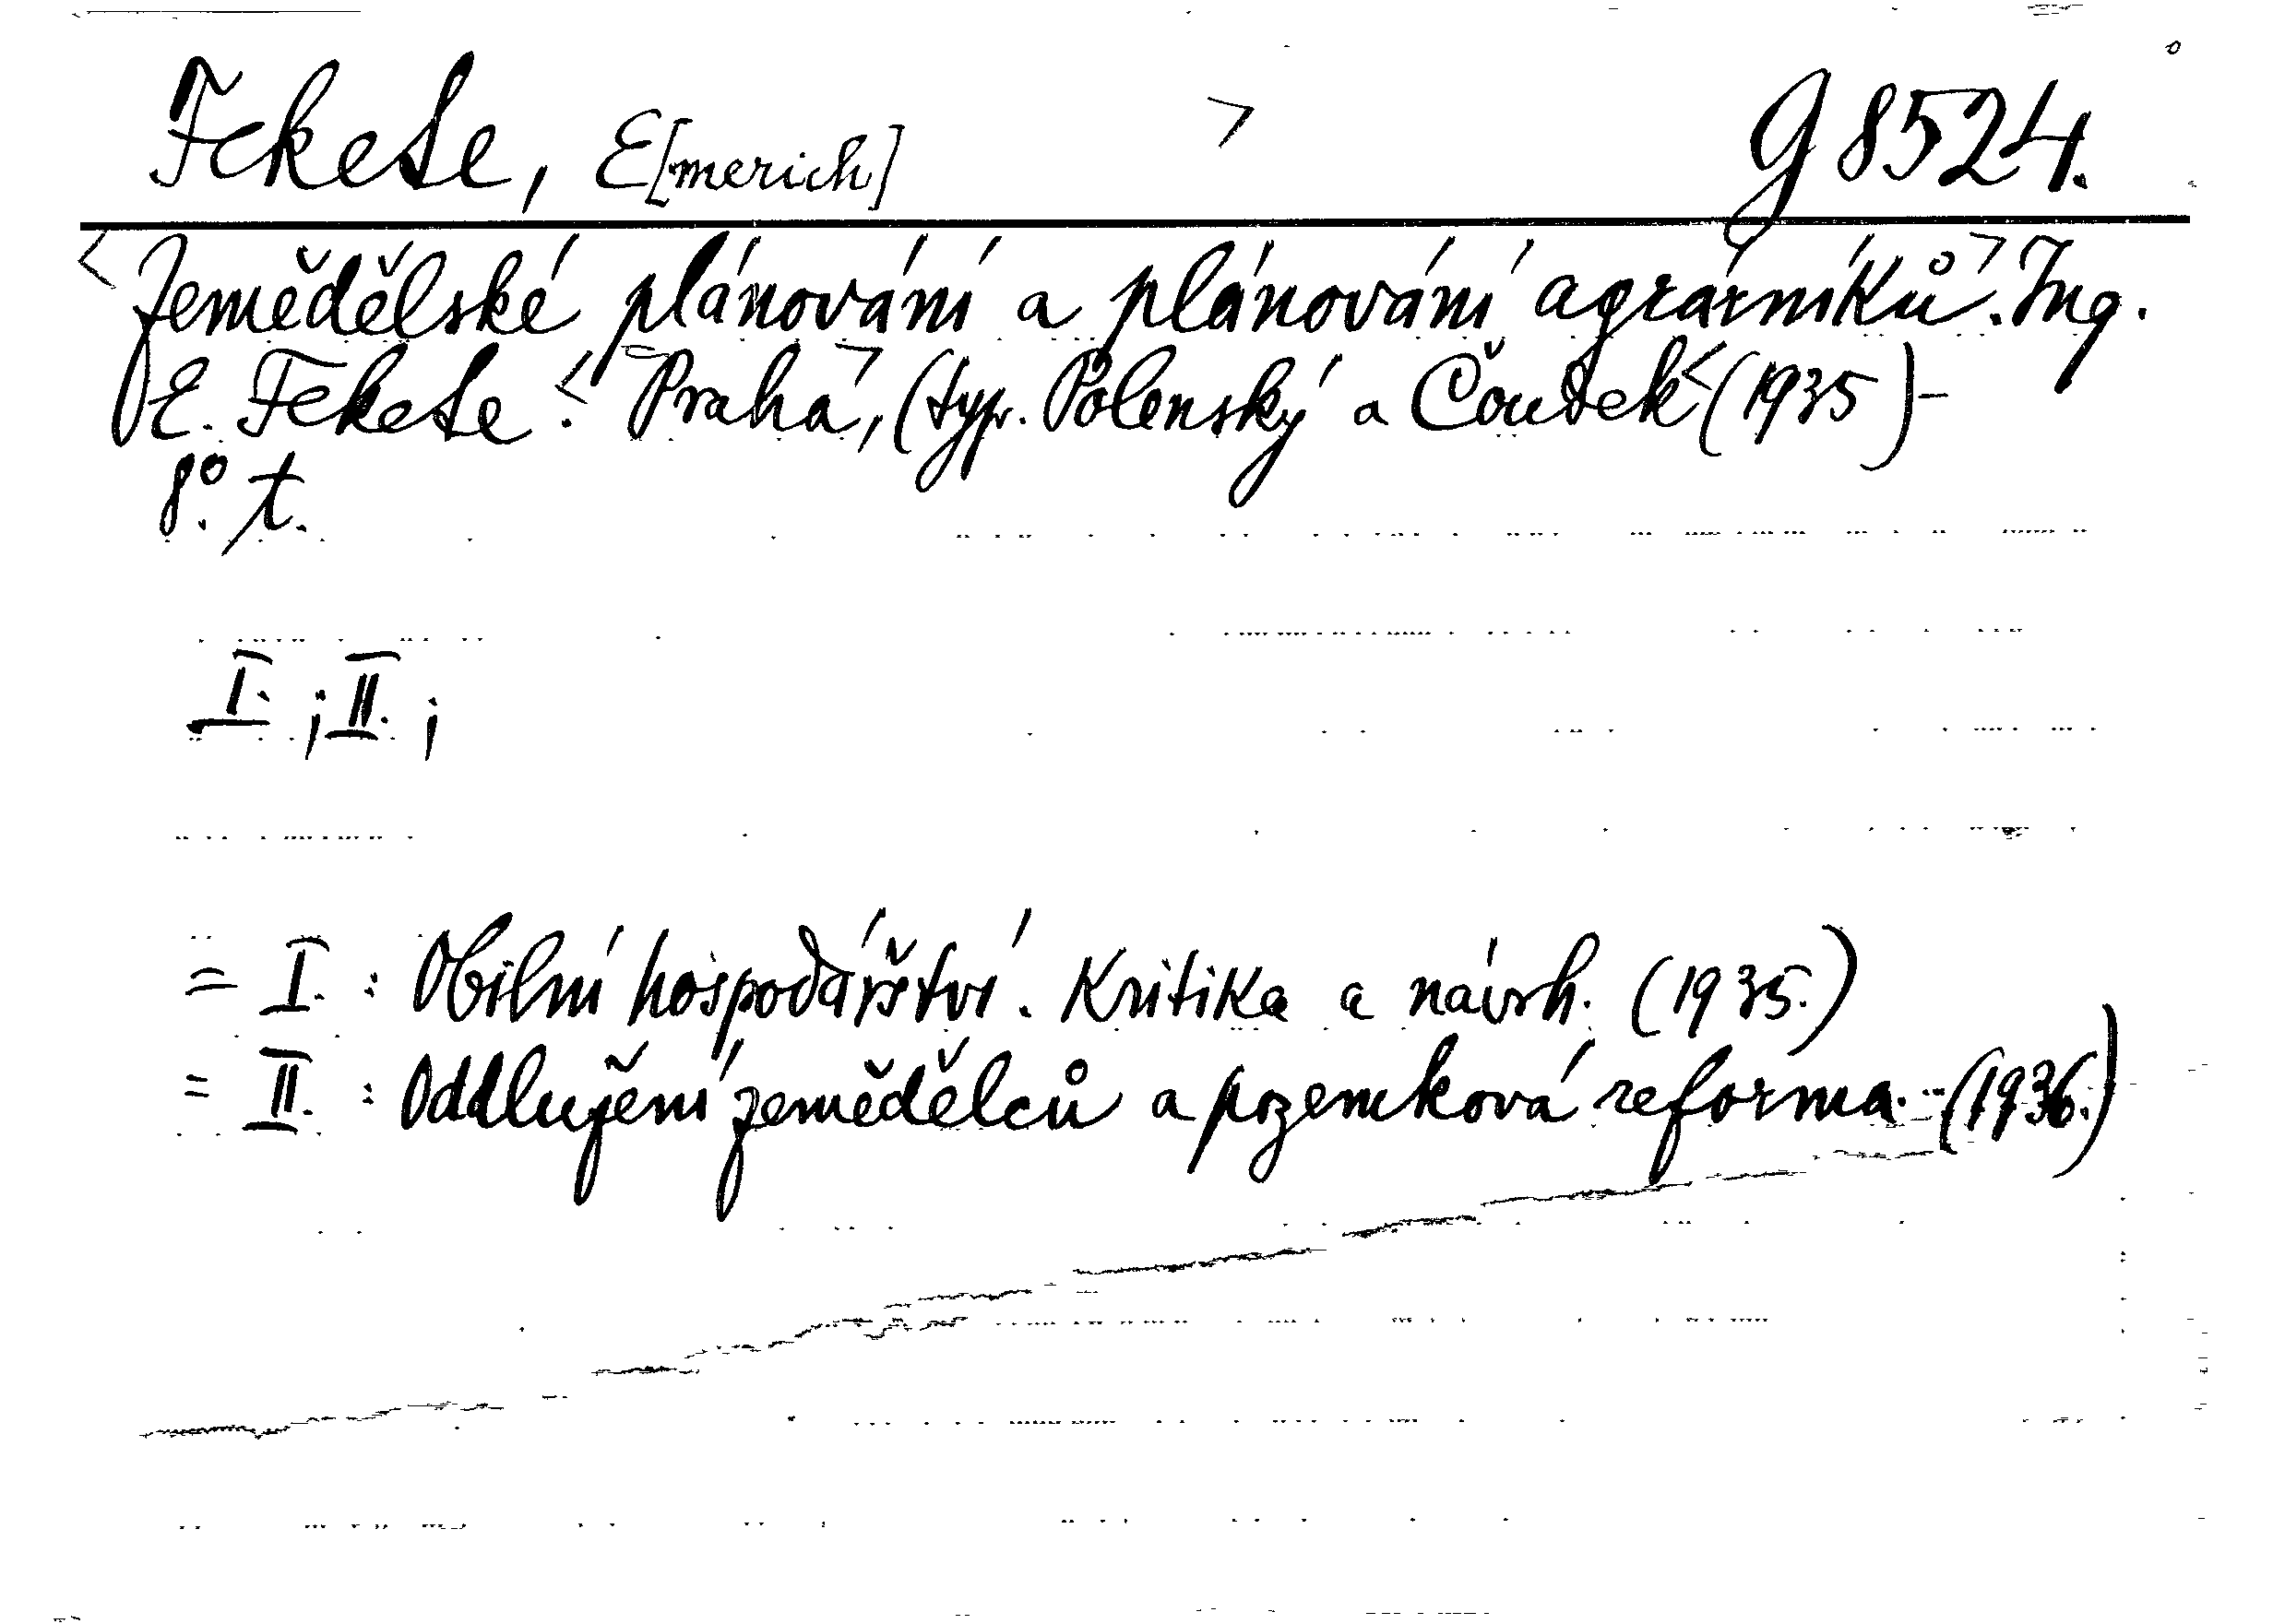 Fekete, E[merich] > g 8524.
<Zemědělské plánování a plánování agrárníků>. Ing.
E. Fekete. < Praha>, (typ. Polenský a Čoutek < (1935)-
8°. t.
I. ; II. ;
= I. : Obilní hospodářství. Kritika a návrh. (1935.)
= II. : Oddlužení zemědělců a pozemková reforma. - (1936.)